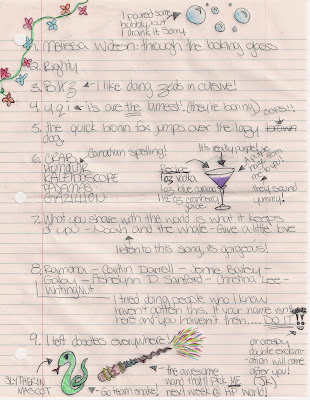 I poured some
bubbly, but
I drank it. Sorry.
1. Melissa Watson: through the looking glass
2. Righty
3. B & Z → I like doing zeds in cursive!
4. y q i → is are the lamest! (they're boring)
OOPS!!
5. the quick brown fox jumps over the lazy brown
dog.
6. CRAB
Canadian spelling!
HUMOUR
KALEIDOSCOPE
PAJAMAS
GAZILLION
It's really purple!
Recipe
1 oz vodka
1 oz blue curacao
1 ½ oz cranberry
juice
they sound
yummy!
7. What you share with the world is what it keeps
of you - Noah and the Whale - Give a little love
listen to this song, it's gorgeous!
8. Ramona - Caitlin Darrell - Jenne Bailey -
Christina Lee -
WritingNut
I tried doing people who I know
haven't gotten this. If your name isn't
here and you haven't then.... DO IT
9. I left doodles everywhere!
SLYTHERIN
MASCOT
Go team snake!
the awesome
wand that'll pick ME (JK)
next week @ HP World!
an crazy
double exclam-
ation will come
after you!